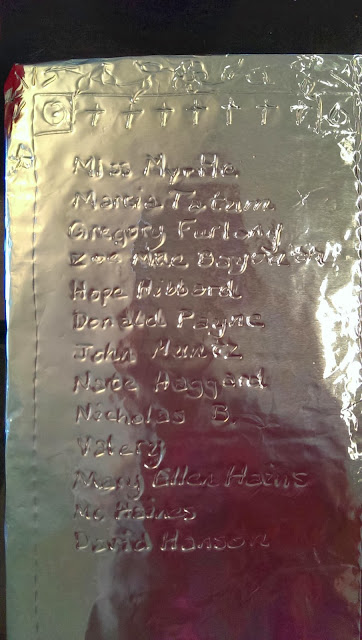 Miss Myrtle
Marcia Tatum
Gregory Furlong
Zoe Mae
Hope Hibbard
Donald Payne
John Muntz
Haggard
Nicholas B.
Valery
Mary Ellen Hains
Mc Haines
David Hanson